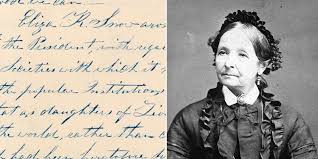 we can
Eliza R. Snow aros
the President, with rega
Societies with which it
the popular Institutions
at as daughters of Zion
the world, rather than
had been